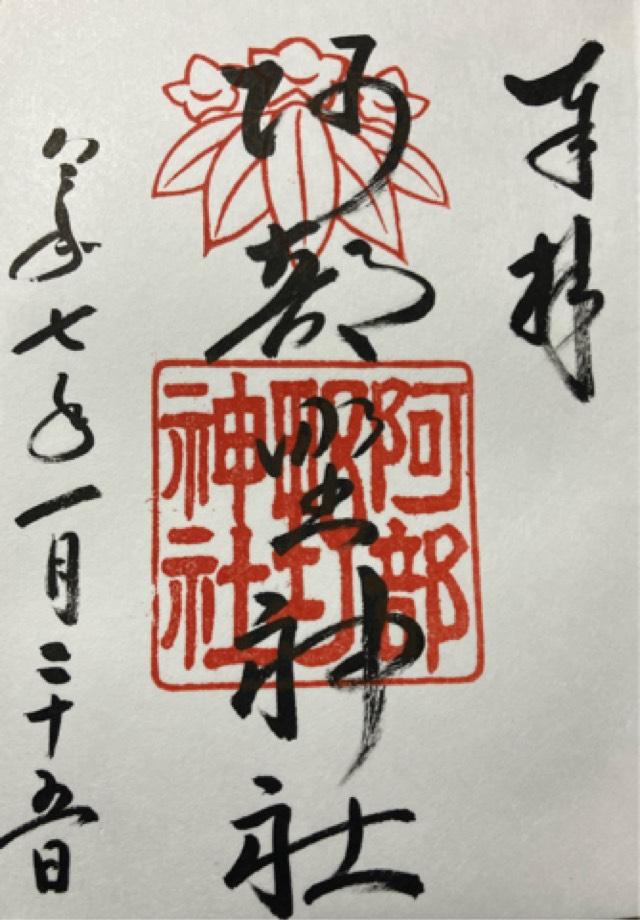 奉拝
阿部野神社
阿部
野
神社
令和七年一月二十五日